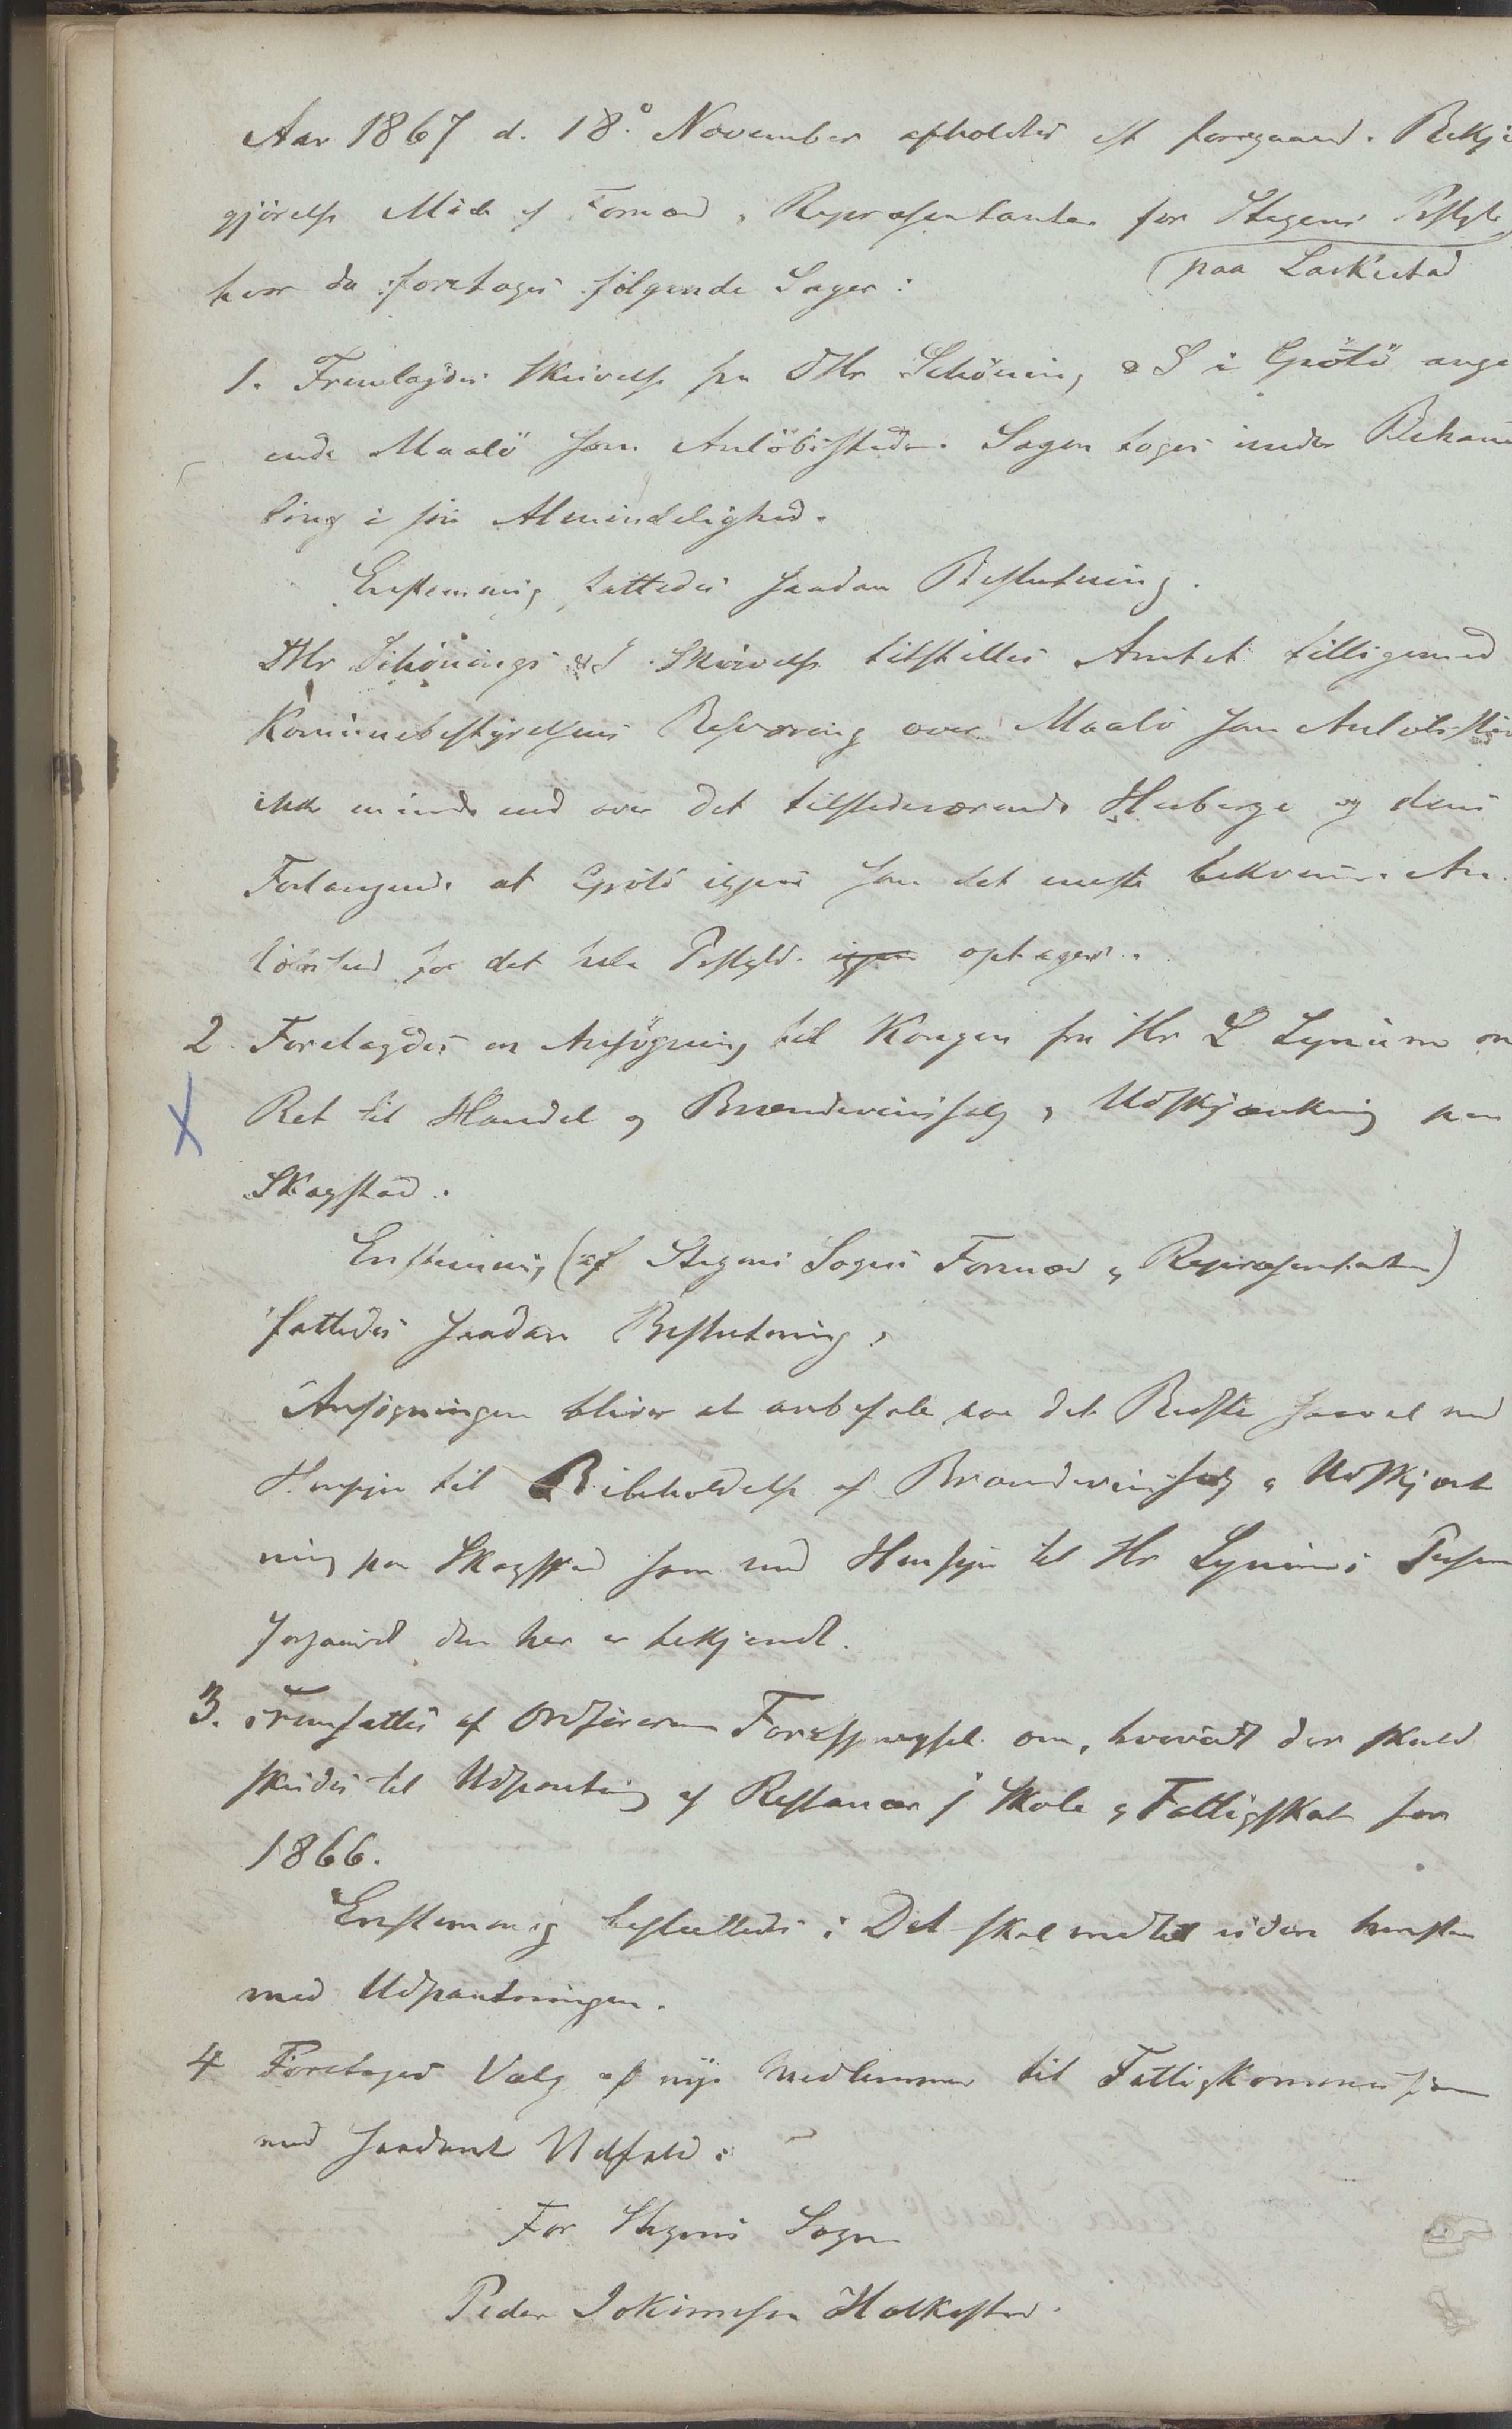 Aar 1867 d. 18.° November afholdtes eft foregaaend. Bekj
gjörelse Möde af Formænd, Repræsentanter for Stegens Præstgld
paa Laskestad
hvor da foretoges fölgende Sager:
1. Fremlagdes Skrivelse fra DHr Schöning & S i Grötö ang
ende Maalö som Anlöbssted. Sagen toges under Behand
ling i sin Almindelighed.
Enstemmig fattedes saadan Beslutning.
DHr Schönings & S Skrivelse tilstilles Amtet tilligemed
Kommunebestyrelsens Besværing over Maalö som Anlöbssted
ikke mindre end over det tilstedeværende Herberge og dens
Forlangende at Grötö igjen som det eneste bekvemme An-
löbssted for det hele Præstgld. igjen optages.
2. Forelagdes en Ansögning til Kongen fra Hr L. Lynum om
Ret til Handel og Brændeviinssalg & Udskjænkning paa
Skagstad.
Enstemmig (af Stegens Sogns Formænd & Repræsentanter)
fattedes saadan Beslutning:
Ansögningen bliver at anbefale paa det Bedste saavel med
Hensyn til Bibeholdelse af Brændeviinssalg & Udskjænk
ning paa Skagstad som med Hensyn til Hr Lynums Person
forsaavidt den her er bekjendt.
3. Fremsattes af Ordföreren Forespørgsel om, hvorvidt der skuld
skrides til Udpantning af Restancer i Skole & Fattigskat for
1866.
Enstemmig besluttedes: Det skal dermed uden henstan
med Udpantningen.
4 Foretoges Valg af nye Medlemmer til Fattigkommissionen
med saadant Udfald:
For Stegens Sogn
Peder Jokimsen Halkestad.